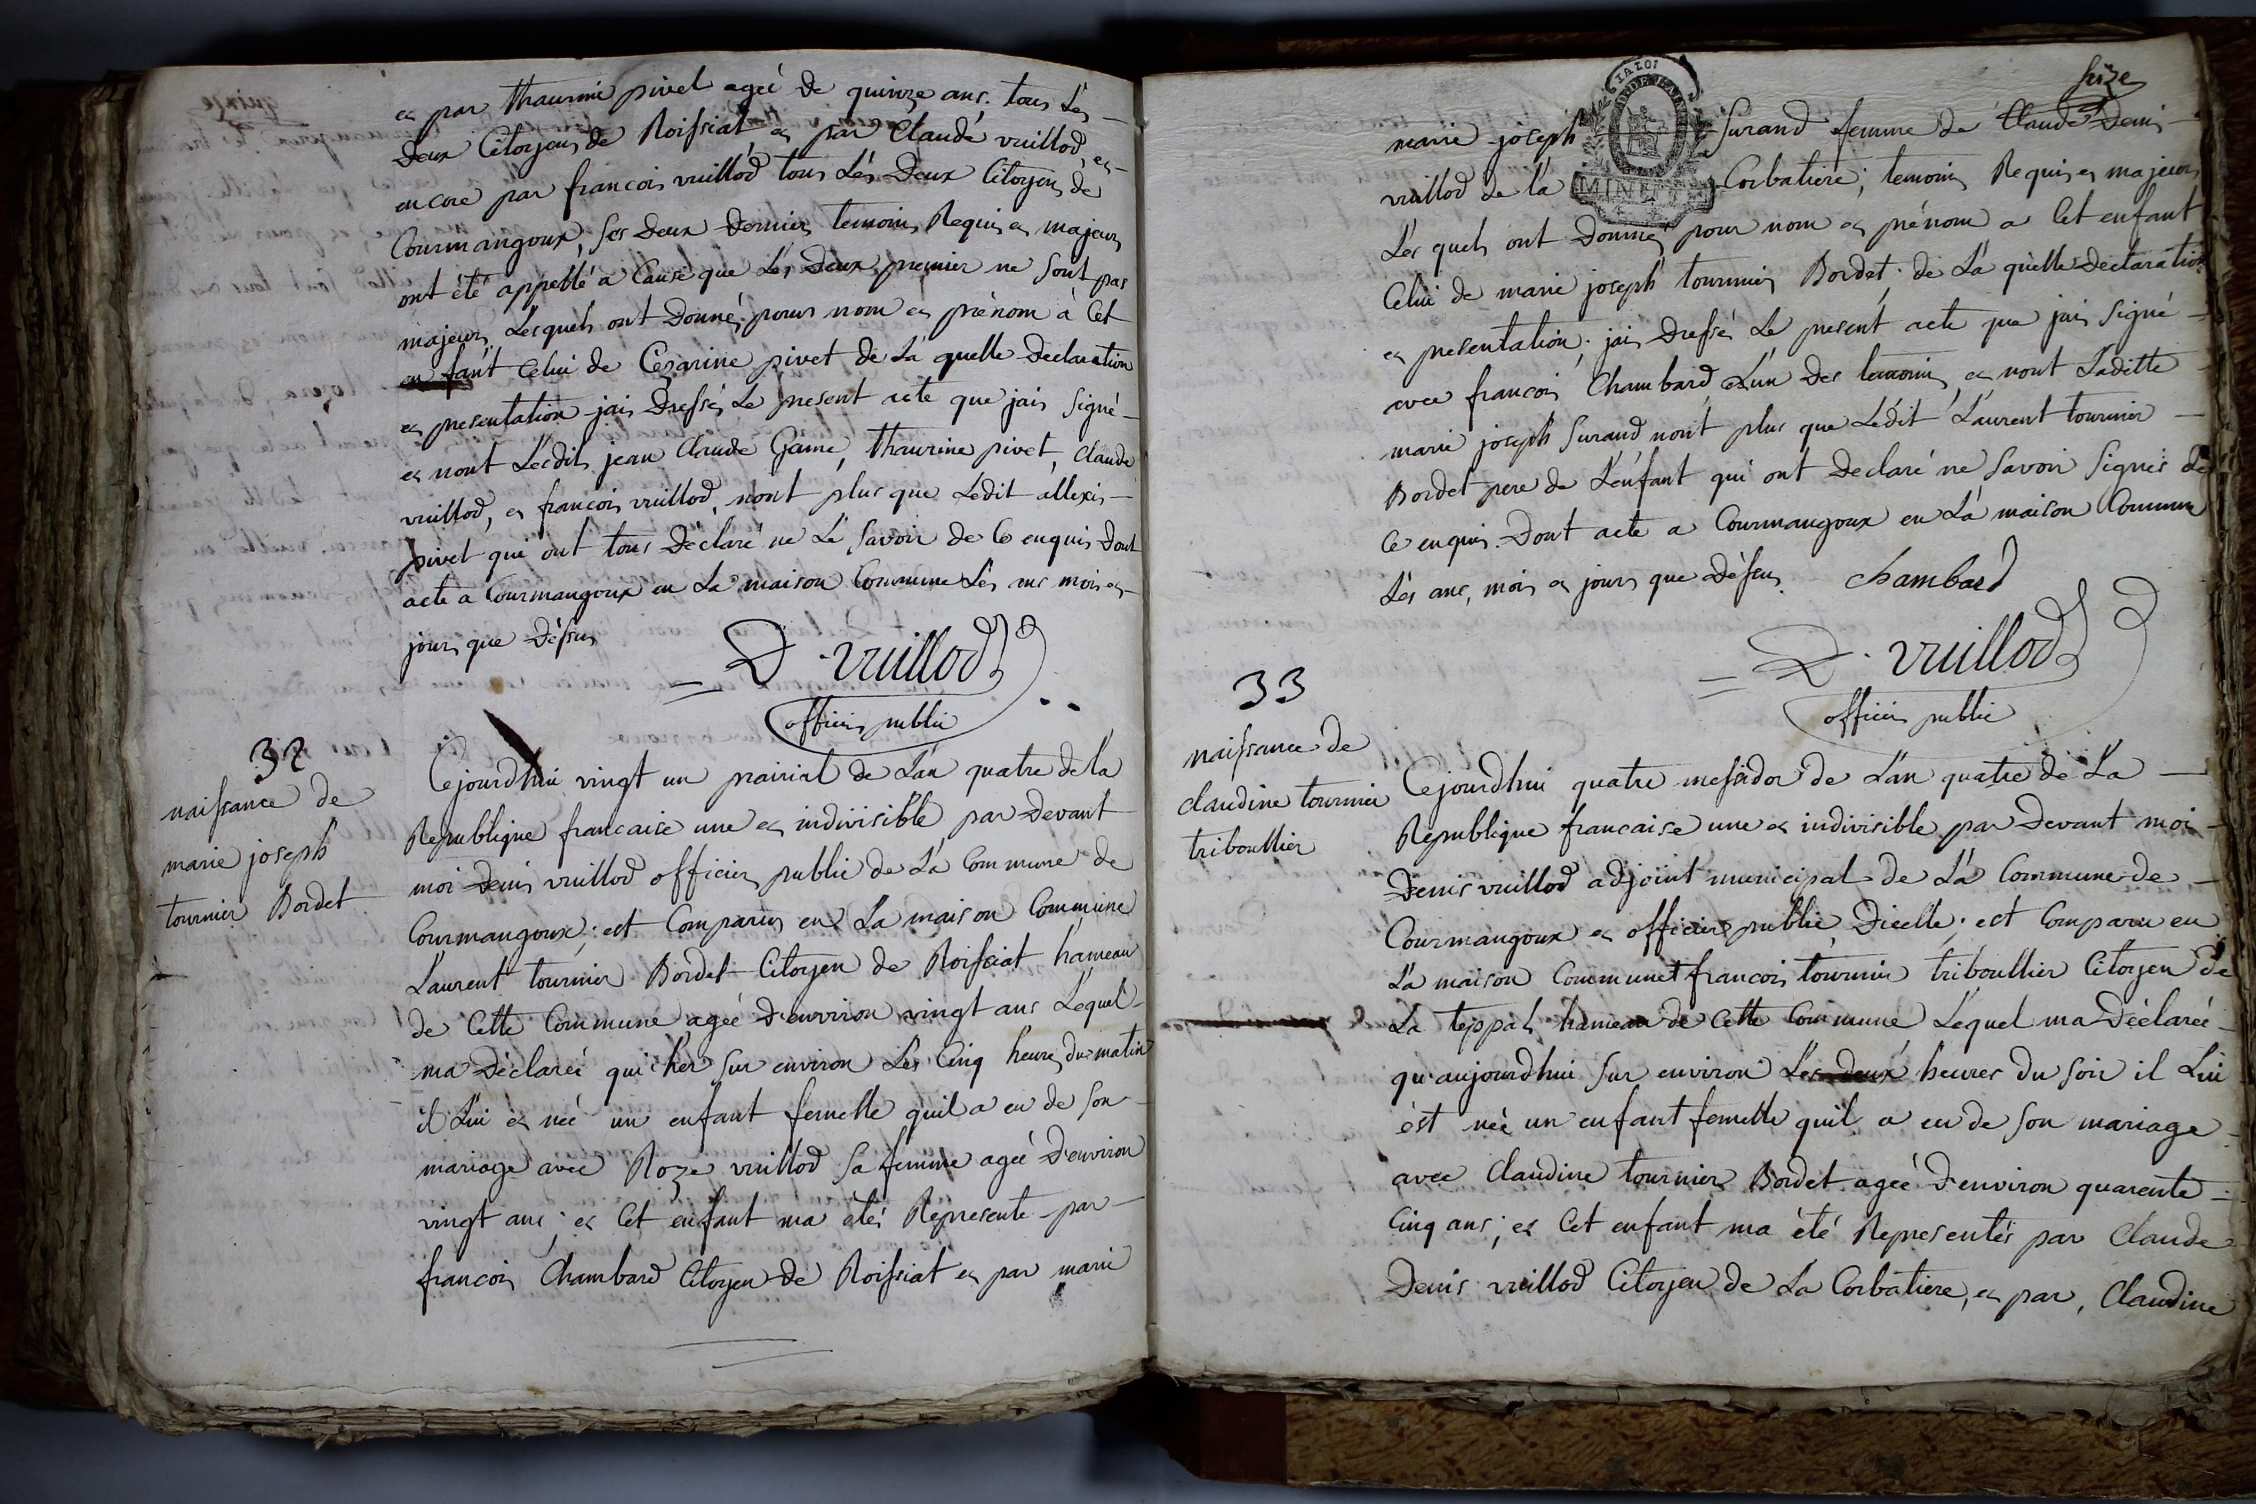 et par thaurine pivet ageé de quinze ans. tous Les
Deux Citoyens de Roissiat et par Claude vuillod, et
encore par francois vuillod tous Lés Deux Citoyens de
Courmangoux, ses Deux Dernier temoins Requis et majeurs
ont été appellé a Cause que Lés Deux premier ne sont pas
majeurs Lesquels ont Donnés pour nom et prénom à Cet
enfant Celui de Cezarine pivet de La quelle Declaration
et presentation jais Dressés Le present acte que jais signé
et nont Lesdits jean Claude Game, thaurine pivet, Claude
vuillod, et francois vuillod, nont plus que Lédit allexis
pivet qui ont tous Déclaré ne Lé savoir de Ce enquis Dont
acte a Courmangoux en La maison Commune Lés ans mois et
jours que Déssus
D. vuillod
officier public
32
naissance de
marie joseph
tournier Bordet
Cejourdhui vingt un prairial de L'an quatre de la
Republique francaise une et indivisible par Devant
moi Denis vuillod officier public de La Commune de
Courmangoux; est Comparus en La maison Commune
Laurent tournier Bordet Citoyen de Roissiat hameau
de Cette Commune ageé d'environ vingt ans Lequel
ma Déclareé qui her sur environ Les Cinq heures du matin
il Lui et neé un enfant femelle quil a eu de son
mariage avec Roze vuillod sa femme ageé D'environ
vingt ans; et Cet enfant ma étés Represente par
francois Chambard Citoyen de Roissiat et par marie
seize
marie joseph Surand femme de Claude Denis
vuillod de la Corbatiere; temoins Requis et majeurs
Lés quels ont Donnés pour nom et prénom a Cet enfant
Celui de marie joseph tournier Bordet; de La quelle Declaration
et presentation; jais Dressés Le present acte que jais signé
avec francois Chambard L'un Des temoins et nont Ladette
marie joseph Surand nont plus que Lédit Laurent tournier
Bordet pere de L'enfant qui ont Declaré ne savoir signer de
Ce enquis. Dont acte a Courmangoux en La maison Commune
Lés ans, mois et jours que Déssus. Chambard
D. vuillod
officier public
33
naissance de
claudine tournier
triboullier
Cejourdhui quatre messidor de L'an quatre de La
Republique francaise une et indivisible par Devant moi
Denis vuillod adjoint municipal de La Commune de
Courmangoux et officier public Dicelle; est Comparu en
La maison Commune francois tournier triboullier Citoyen de
La teppat hameau de Cette Commune Lequel ma Déclareé
qu'aujourdhui sur environ Les deux heures du soir il Lui
est neé un enfant femelle quil a eu de son mariage
avec Claudine tournier Bordet ageé D'environ quarente
Cinq ans; et Cet enfant ma été Representés par Claude
Denis vuillod Citoyen de La Corbatiere, et par, Claudine